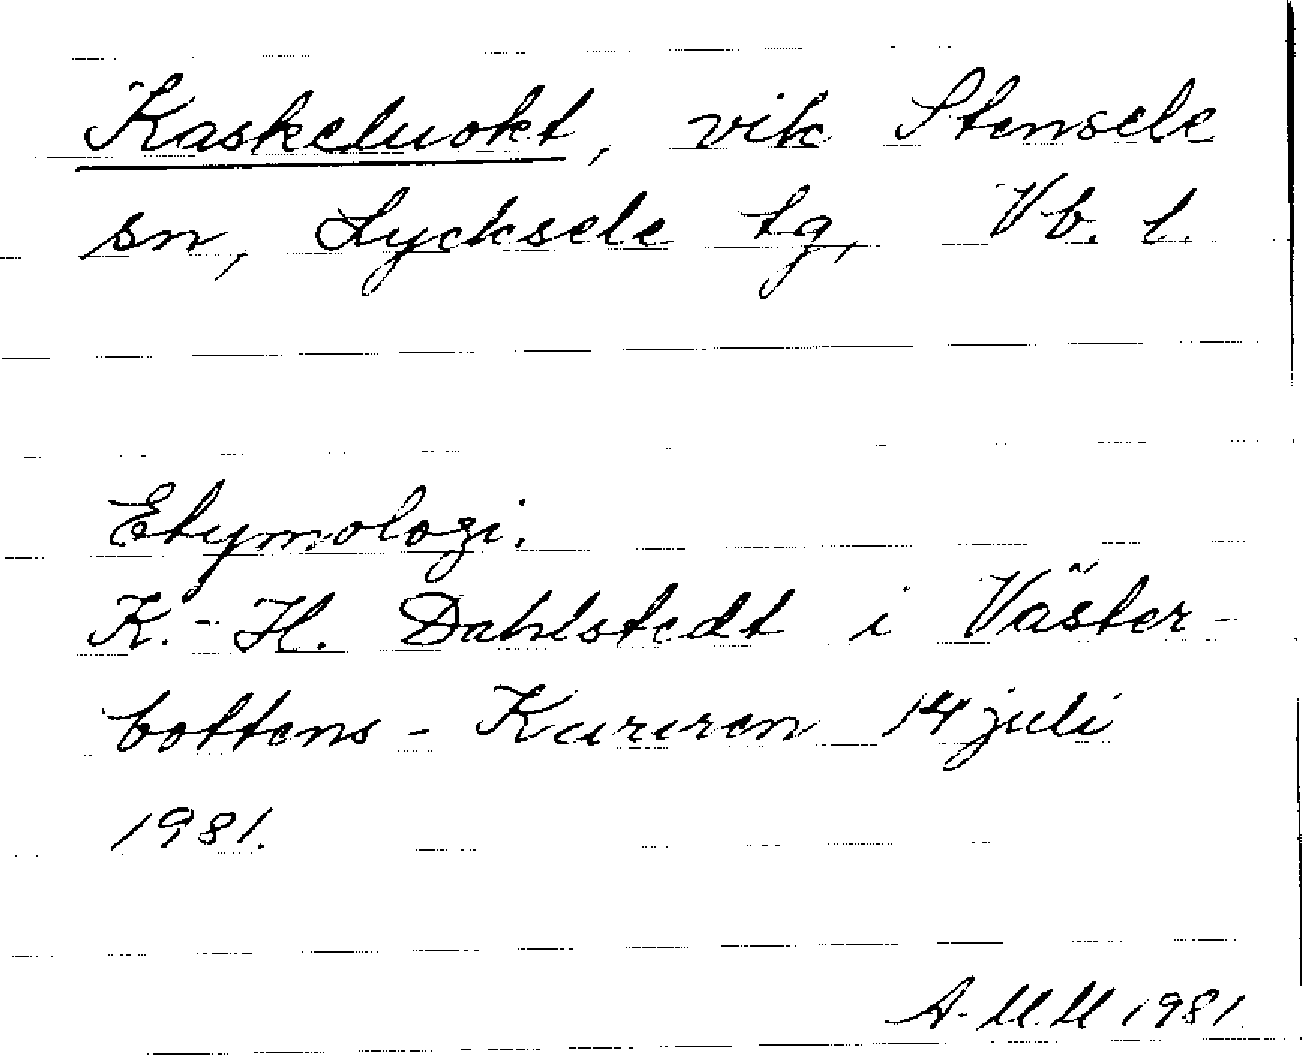 Kaskeluokt, vik Stensele
sn, Lycksele tg, Vb. l.
Etymologi.
K.-H. Dahlstedt i Väster-
bottens-Kuriren 14 juli
1981.
A. M.M 1981